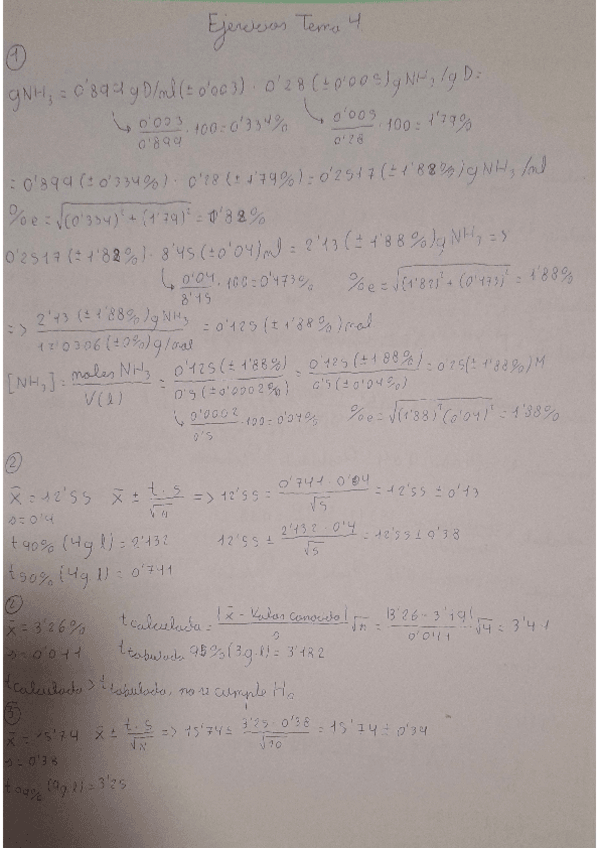 Ejercicios Tema 4
①
gNH₃ = 0'899 gD/ml (±0'003) · 0'28 (±0'005) gNH₃/gD =
↳ 0'003/0'899 · 100 = 0'334% ↳ 0'005/0'28 · 100 = 1'79%
= 0'899 (±0'334%) · 0'28 (±1'79%) = 0'2517 (±1'82%) gNH₃/ml
%e = √((0'334)² + (1'79)²) = 1'82%
0'2517 (±1'82%) · 8'45 (±0'04) ml = 2'13 (±1'88%) gNH₃ =>
↳ 0'04/8'45 · 100 = 0'473% %e = √((1'82)² + (0'473)²) = 1'88%
=> 2'13 (±1'88%) gNH₃ / 17'0306 (±0%) g/mol = 0'125 (±1'88%) mol
[NH₃] = moles NH₃ / V(l) = 0'125 (±1'88%) / 0'5 (±0'0002%) = 0'125 (±1'88%) / 0'5 (±0'04%) = 0'25 (±1'88%) M
↳ 0'0002/0'5 · 100 = 0'04% %e = √((1'88)² (0'04)²) = 1'88%
②
x̄ = 12'55 x̄ ± t·s/√n => 12'55 = 0'741 · 0'04/√5 = 12'55 ± 0'13
s = 0'4
t90% (4 g l) = 2'132 12'55 ± 2'132 · 0'4/√5 = 12'55 ± 0'38
t50% (4 g l) = 0'741
②
x̄ = 3'26% tcalculada = |x̄ - Valor conocido|/s √n = |3'26 - 3'19|/0'041 √4 = 3'41
s = 0'041 ttabulada 95% (3 g·l) = 3'182
tcalculada > ttabulada, no se cumple H₀
③
x̄ = 15'74 x̄ ± t·s/√n => 15'74 ± 3'25 · 0'38/√10 = 15'74 ± 0'39
s = 0'38
t99% (9 g.l) = 3'25